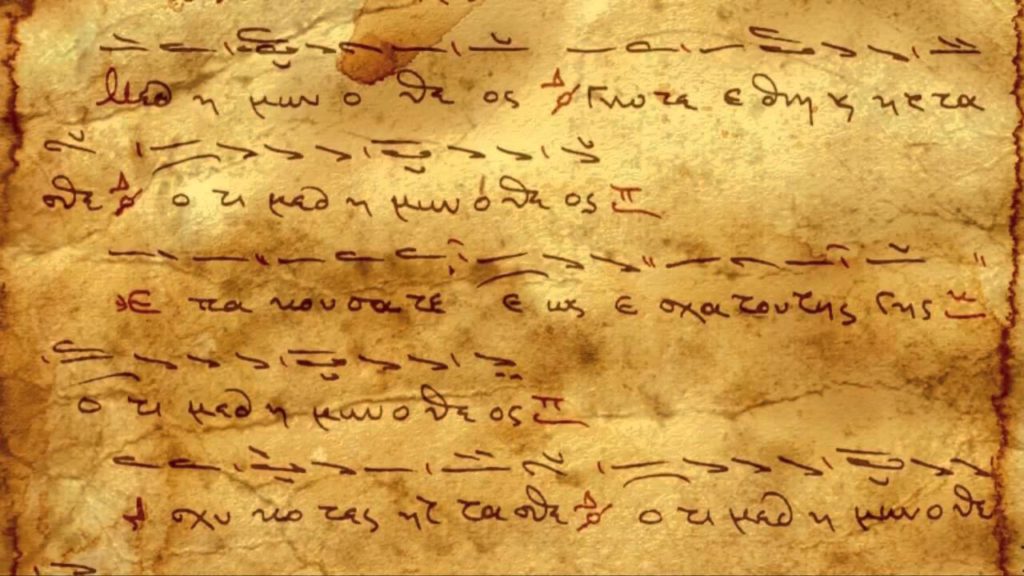 Μεθ η μων ο θε ος Γνωτε ε θνη κ ητ τα
σθε ο τι μεθ η μων ο θε ος
Ε πα κου σα τε ε ως ε σχα του της γης
ο τι μεθ η μων ο θε ος
Ι σχυ κο τες ητ τα σθε ο τι μεθ η μων ο θε